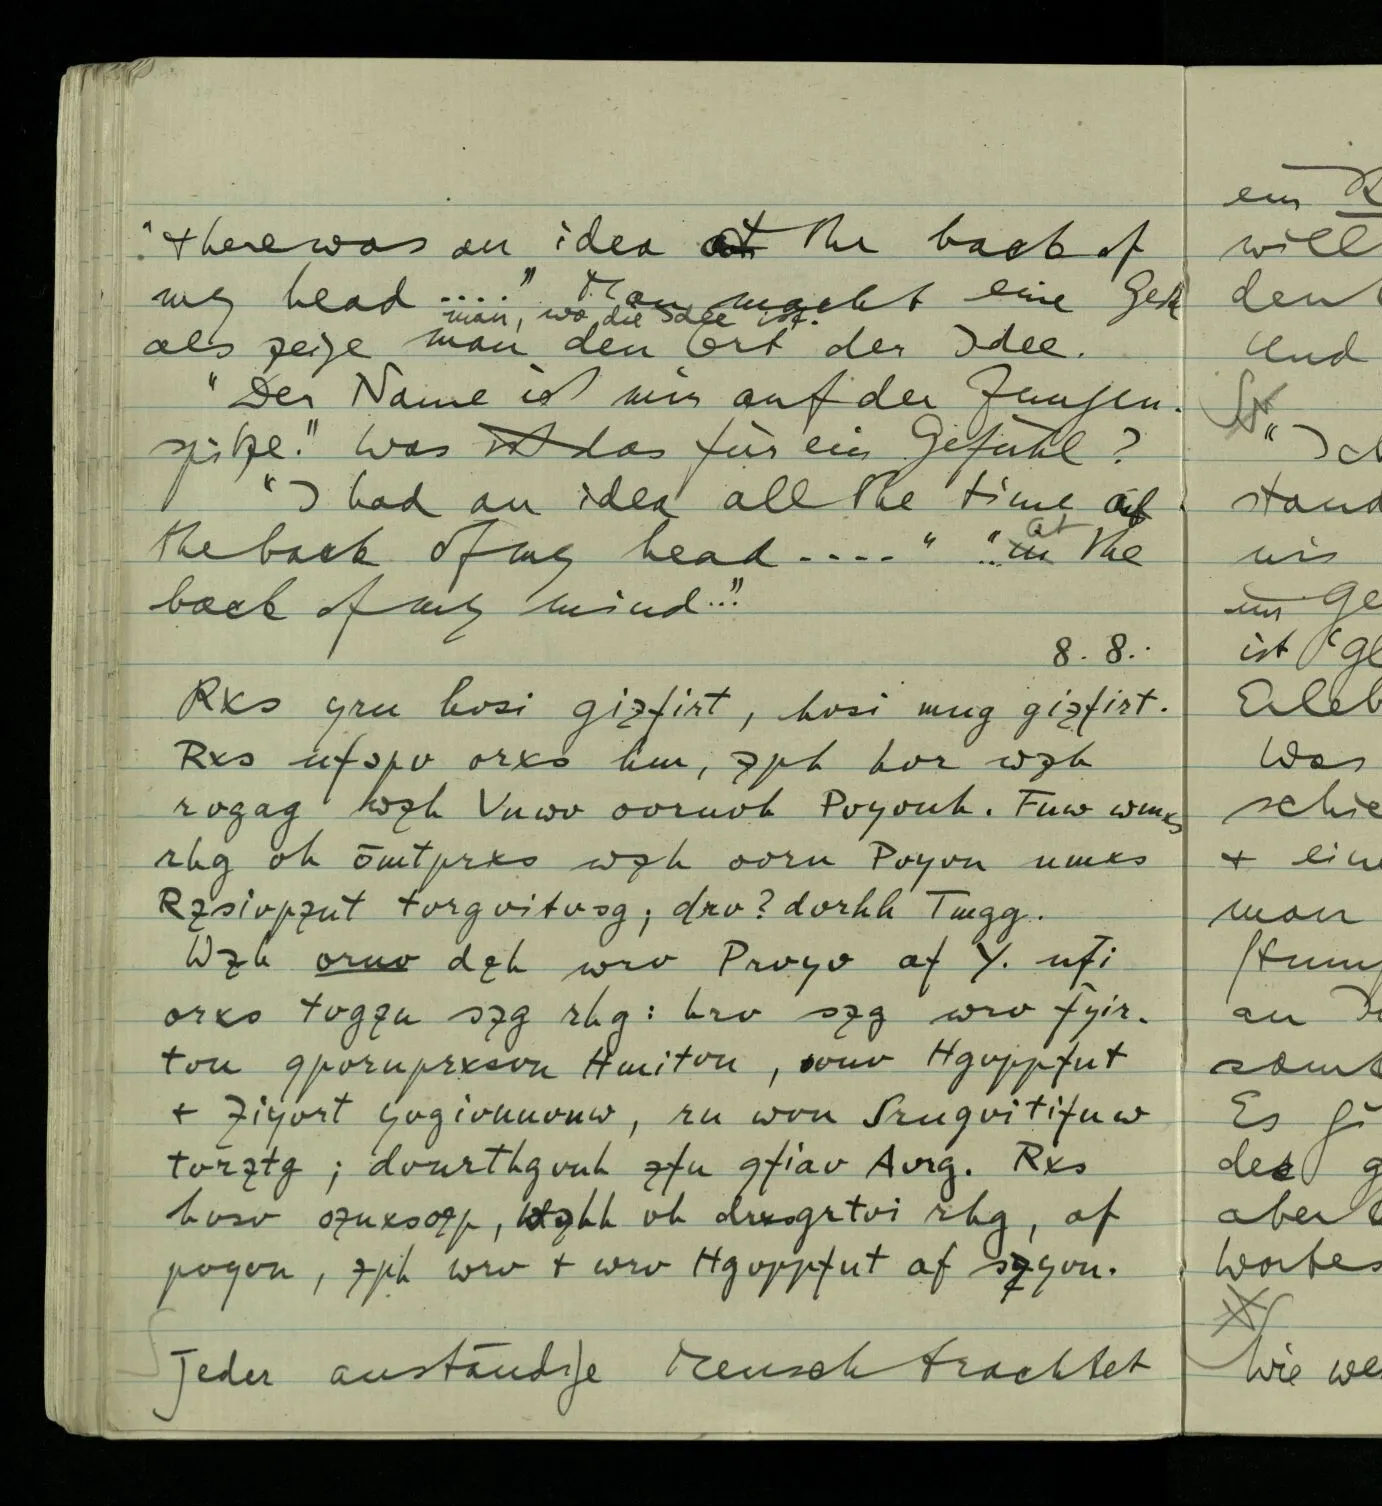 "There was an idea at the back of
my head ....." Man macht eine Geste
man, wo die Idee ist.
als zeige man den Ort der Idee.
"Der Name ist mir auf der Zungen-
spitze." Was ist das für ein Gefühl?
"I had an idea all the time at
the back of my head ----" "in the
at
back of my mind..."
8. 8..
Rxs yru hvsi gizfirt, hvsi mug gizfirt.
Rxs ufzpv orxs hm, zph hvr wzh
rvgag wzh Vuwv ooruvh Pvyvuh. Fuw wmxs
rhg oh ömtprxs wzh oorn Pvyvu umxs
Rzsivpzut tvrgvitvsg; drv? dvrhh Tmgg.
Wzh oruv dzh wrv Prvyv af Y. ufi
orxs tvgzu szg rhg: hrv szg wrv fyir-
tvu gpvruprxsvu Hmitvu, wvuv Hgvppfut
+ Ziyvrt yvgivuuvuw, ru wvu Srugvitifuw
tvrztg; dvurthgvuh zfu gfiav Avrg. Rxs
hvsv ozuxsozp, wzhh vh drxsgrtvi rhg, af
pvyvu, zph wrv + wrv Hgvppfut af szyvu.
Jeder anständige Mensch trachtet
ein
will
den
Und
"Ich
stand
uns
ist
Was
schie
+ eine
man
an
samt
Es
der
aber
Wortes
Wie we